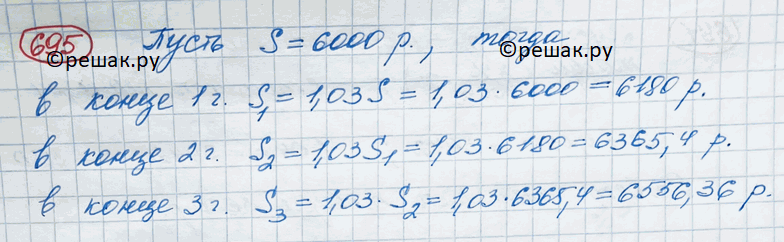 695 Пусть S = 6000 р., тогда
©решак.ру ©решак.ру
в конце 1 г. S₁ = 1,03 S = 1,03 · 6000 = 6180 р.
в конце 2 г. S₂ = 1,03 S₁ = 1,03 · 6180 = 6365,4 р.
в конце 3 г. S₃ = 1,03 · S₂ = 1,03 · 6365,4 = 6556,36 р.